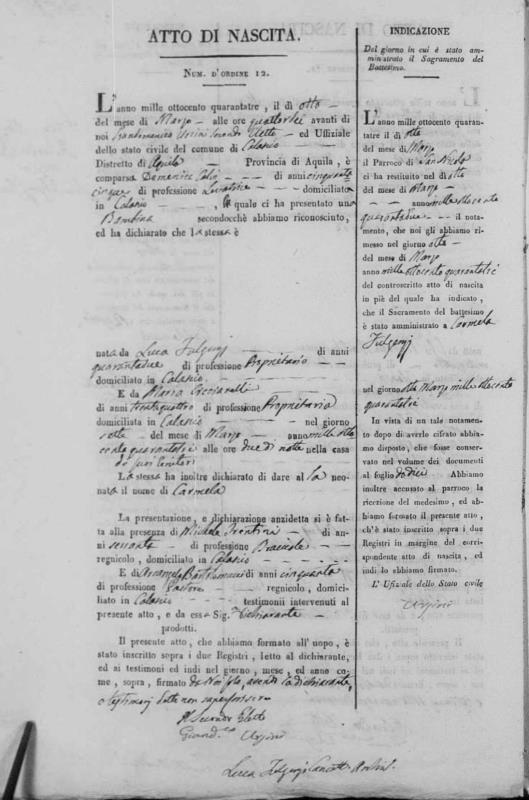 ATTO DI NASCITA.
NUM. D'ORDINE 12.
L'anno mille ottocento quarantatre, il dì otto -
del mese di Marzo - alle ore quattordici avanti di
noi Giandomenico Arsini Secondo Eletto - ed Uffiziale
dello stato civile del comune di Calascio -
Distretto di Aquila - Provincia di Aquila, è
comparsa Domenica - di anni cinquanta
cinque di professione Levatrice - domiciliata
in Calascio - , la quale ci ha presentato una
Bambina secondocchè abbiamo riconosciuto,
ed ha dichiarato che la stessa è
nata da Luca Fulgenzj - di anni
quarantadue di professione Proprietario
domiciliato in Calascio
E da Maria
di anni trentaquattro di professione Proprietaria
domiciliata in Calascio - nel giorno
sette - del mese di Marzo - anno mille otto
cento quarantatre alle ore due di notte nella casa
de' suoi Genitori
La stessa ha inoltre dichiarato di dare al la neo-
nata il nome di Carmela
La presentazione, e dichiarazione anzidetta si è fat-
ta alla presenza di Michele Trentini - di an-
ni sessanta - di professione Bracciale
regnicolo, domiciliato in Calascio
E di di anni cinquanta
di professione Pastore - regnicolo, domici-
liato in Calascio - testimonii intervenuti al
presente atto, e da essa Sig. Dichiarante -
prodotti.
Il presente atto, che abbiamo formato all' uopo, è
stato inscritto sopra i due Registri, letto al dichiarante,
ed ai testimoni ed indi nel giorno, mese, ed anno co-
me, sopra, firmato da Noi solo, avendo la dichiarante,
e testimonj detto non saper scrivere
Il Secondo Eletto
Giand.co Arsini
Luca Fulgenzj
INDICAZIONE
Del giorno in cui è stato am-
ministrato il Sagramento del
Battesimo.
L'anno mille ottocento quaran-
tatre il dì otto
del mese di Marzo
il Parroco di San Nicola
ci ha restituito nel dì otto
del mese di Marzo -
anno mille ottocento
quarantatre - il nota-
mento, che noi gli abbiamo ri-
messo nel giorno otto -
del mese di Marzo
anno mille ottocento quarantatre
del controscritto atto di nascita
in piè del quale ha indicato,
che il Sacramento del battesimo
è stato amministrato a Carmela
Fulgenzj
nel giorno otto Marzo mille ottocento
quarantatre
In vista di un tale notamento
dopo di averlo cifrato abbia-
mo disposto, che fosse conser-
vato nel volume dei documenti
al foglio dodici Abbiamo
inoltre accusato al parroco la
ricezione del medesimo, ed ab-
biamo formato il presente atto,
ch'è stato inscritto sopra i due
Registri in margine del corri-
spondente atto di nascita, ed
indi lo abbiamo firmato.
L' Ufiziale dello Stato civile
Arsini